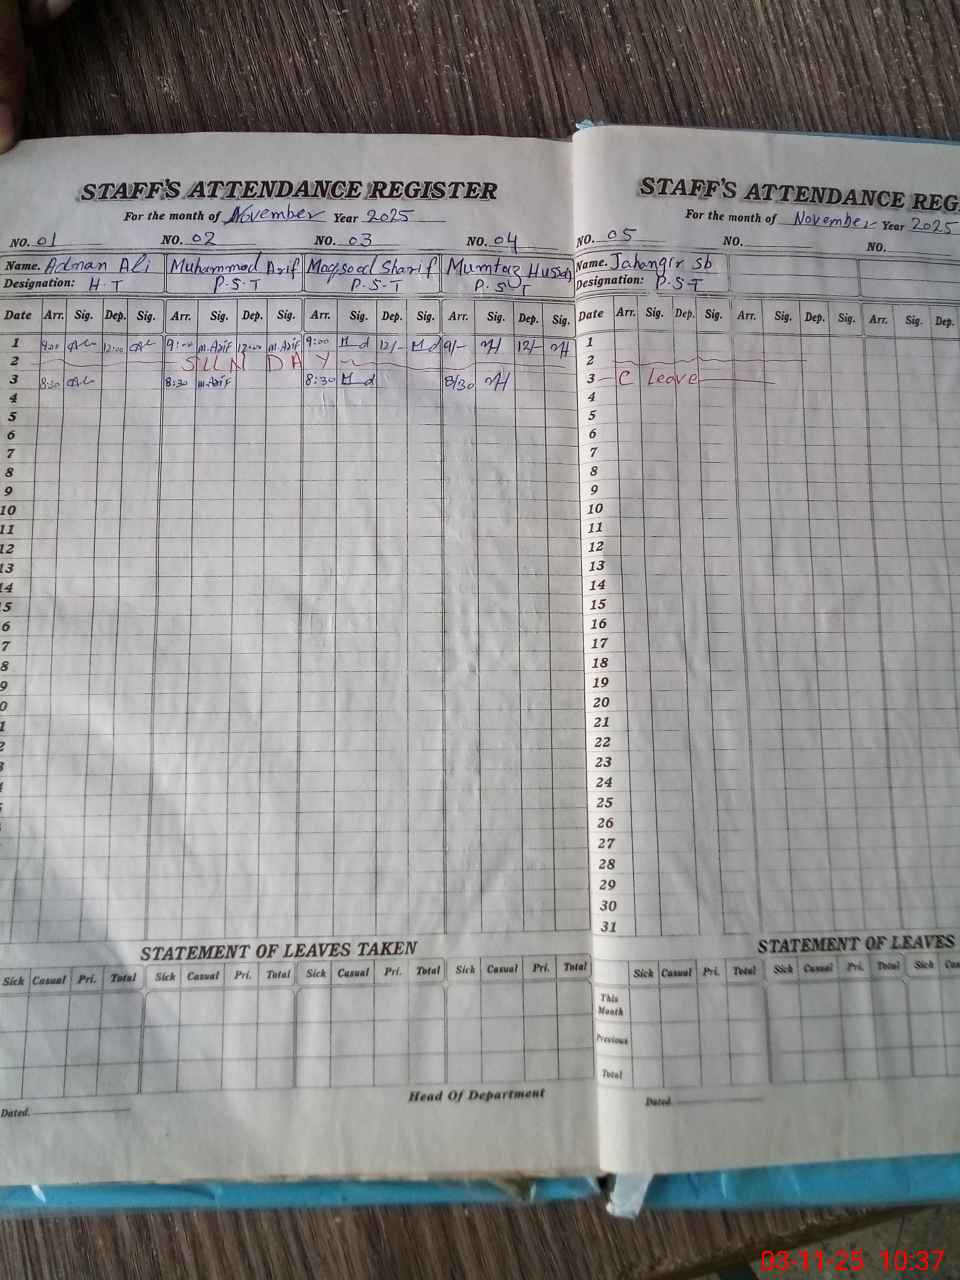 STAFF'S ATTENDANCE REGISTER
For the month of November Year 2025
NO. 01 NO. 02 NO. 03 NO. 04
Name. Adnan Ali Muhammad Arif Maqsood Sharif Mumtaz Hussain
Designation: H.T P.S.T P.S.T P.S.T
Date Arr. Sig. Dep. Sig. Arr. Sig. Dep. Sig. Arr. Sig. Dep. Sig. Arr. Sig. Dep. Sig.
1 9:00 12:00 9:00 M.Arif 12:00 M.Arif 9:00 M d 12/- M d 9/- MH 12/- MH
2 SUN DAY
3 8:30 8:30 M.Arif 8:30 M d 8/30 MH
4
5
6
7
8
9
10
11
12
13
14
5
6
7
8
9
0
1
2
STATEMENT OF LEAVES TAKEN
Sick Casual Pri. Total Sick Casual Pri. Total Sick Casual Pri. Total Sick Casual Pri. Total
Head Of Department
Dated.
STAFF'S ATTENDANCE REG
For the month of November Year 2025
NO. 05 NO. NO.
Name. Jahangir Sb
Designation: P.S.T
Date Arr. Sig. Dep. Sig. Arr. Sig. Dep. Sig. Arr. Sig. Dep.
1
2
3 C Leave
4
5
6
7
8
9
10
11
12
13
14
15
16
17
18
19
20
21
22
23
24
25
26
27
28
29
30
31
STATEMENT OF LEAVES
Sick Casual Pri. Total Sick Casual Pri. Total Sick Cas
This Month
Previous
Total
Dated.
03-11-25 10:37